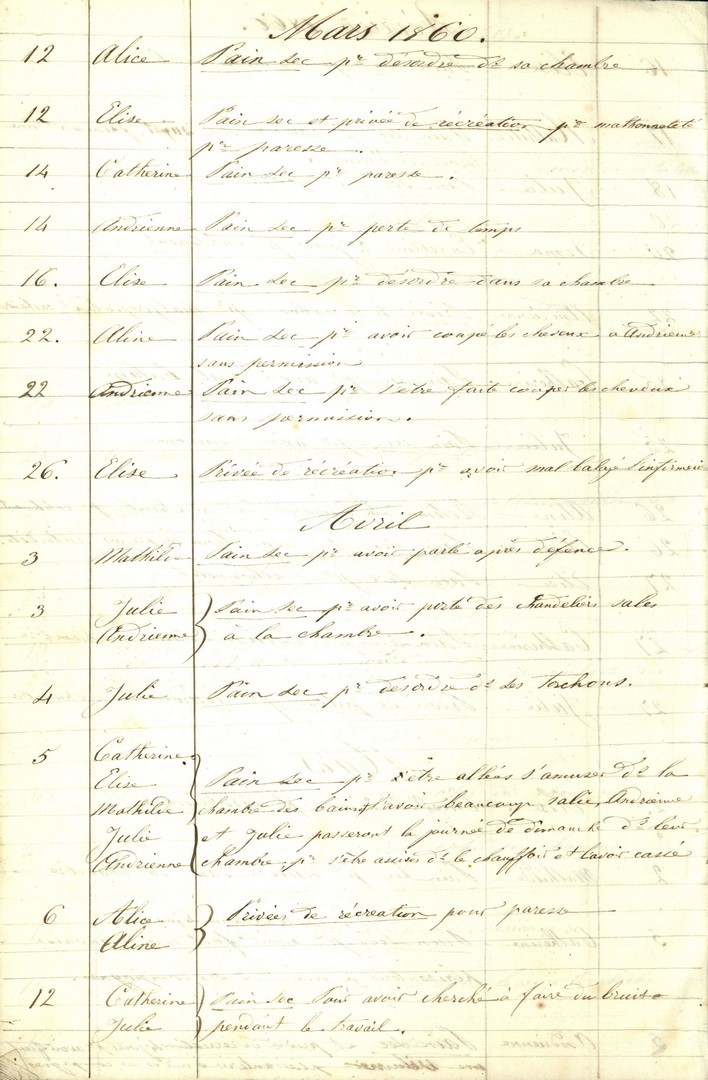 Mars 1860.
12 Alice Pain sec pr désordre ds sa chambre
12 Elise Pain sec et privée de récréation pr malhonneteté
pr paresse.
14 Catherine Pain sec pr paresse.
14 Andrienne Pain sec pr perte de temps
16. Elise Pain sec pr désordre dans sa chambre
22. Aline Pain sec pr avoir coupé les cheveux a Andrienne
sans permission
22 Andrienne Pain sec pr s'être faite couper les cheveux
sans permission.
26. Elise Privée de récréation pr avoir mal balayé l'infirmerie
Avril
3 Mathilde Pain sec pr avoir parlé après défence.
3 Julie Pain sec pr avoir porté des chandeliers sales
Andrienne à la chambre.
4 Julie Pain sec pr desordre ds ses torchons.
5 Catherine
Elise Pain sec pr s'être allées s'amuser ds la
Mathilde chambre des bains et l'avoir beaucoup salie, Andrienne
Julie et Julie passeront la journée de dimanche ds leur
Andrienne chambre pr s'être assises ds le chauffoir et l'avoir cassé
6 Alice Privées de récréation pour paresse
Aline
12 Catherine Pain sec Pour avoir cherché à faire du bruit
Julie pendant le travail.